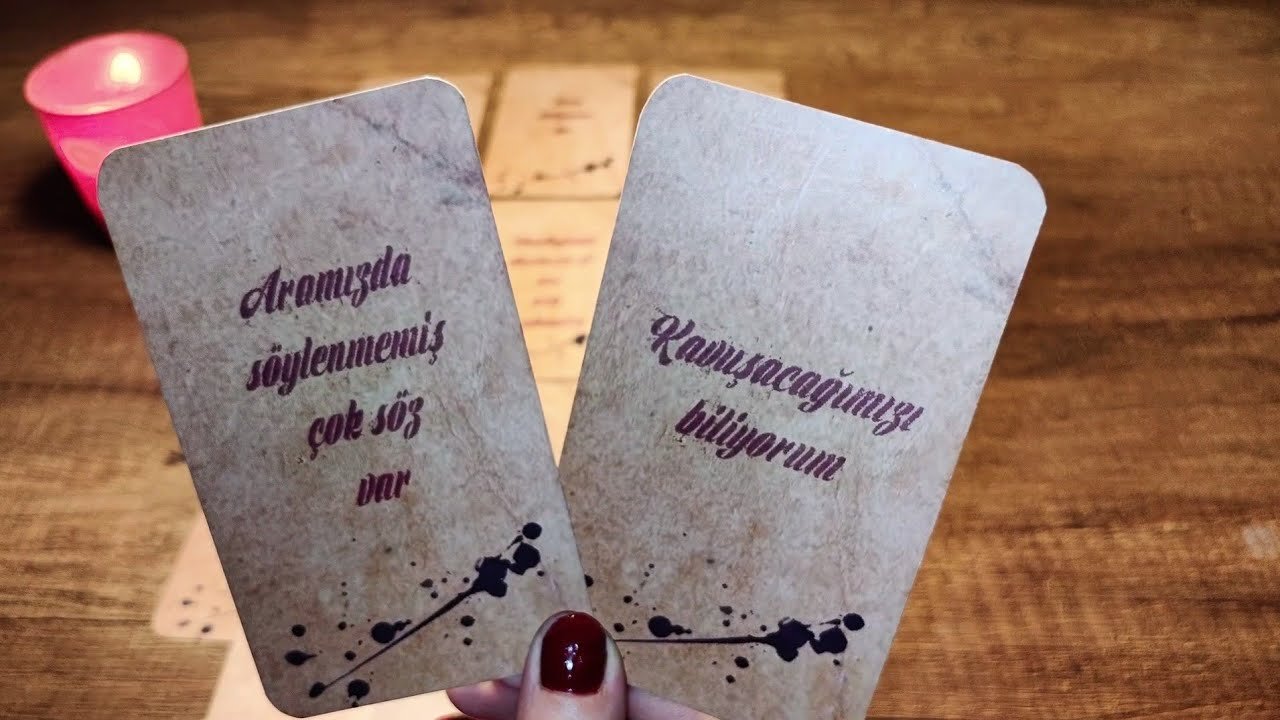 Aramızda
söylenmemiş
çok söz
var
Kavuşacağımızı
biliyorum